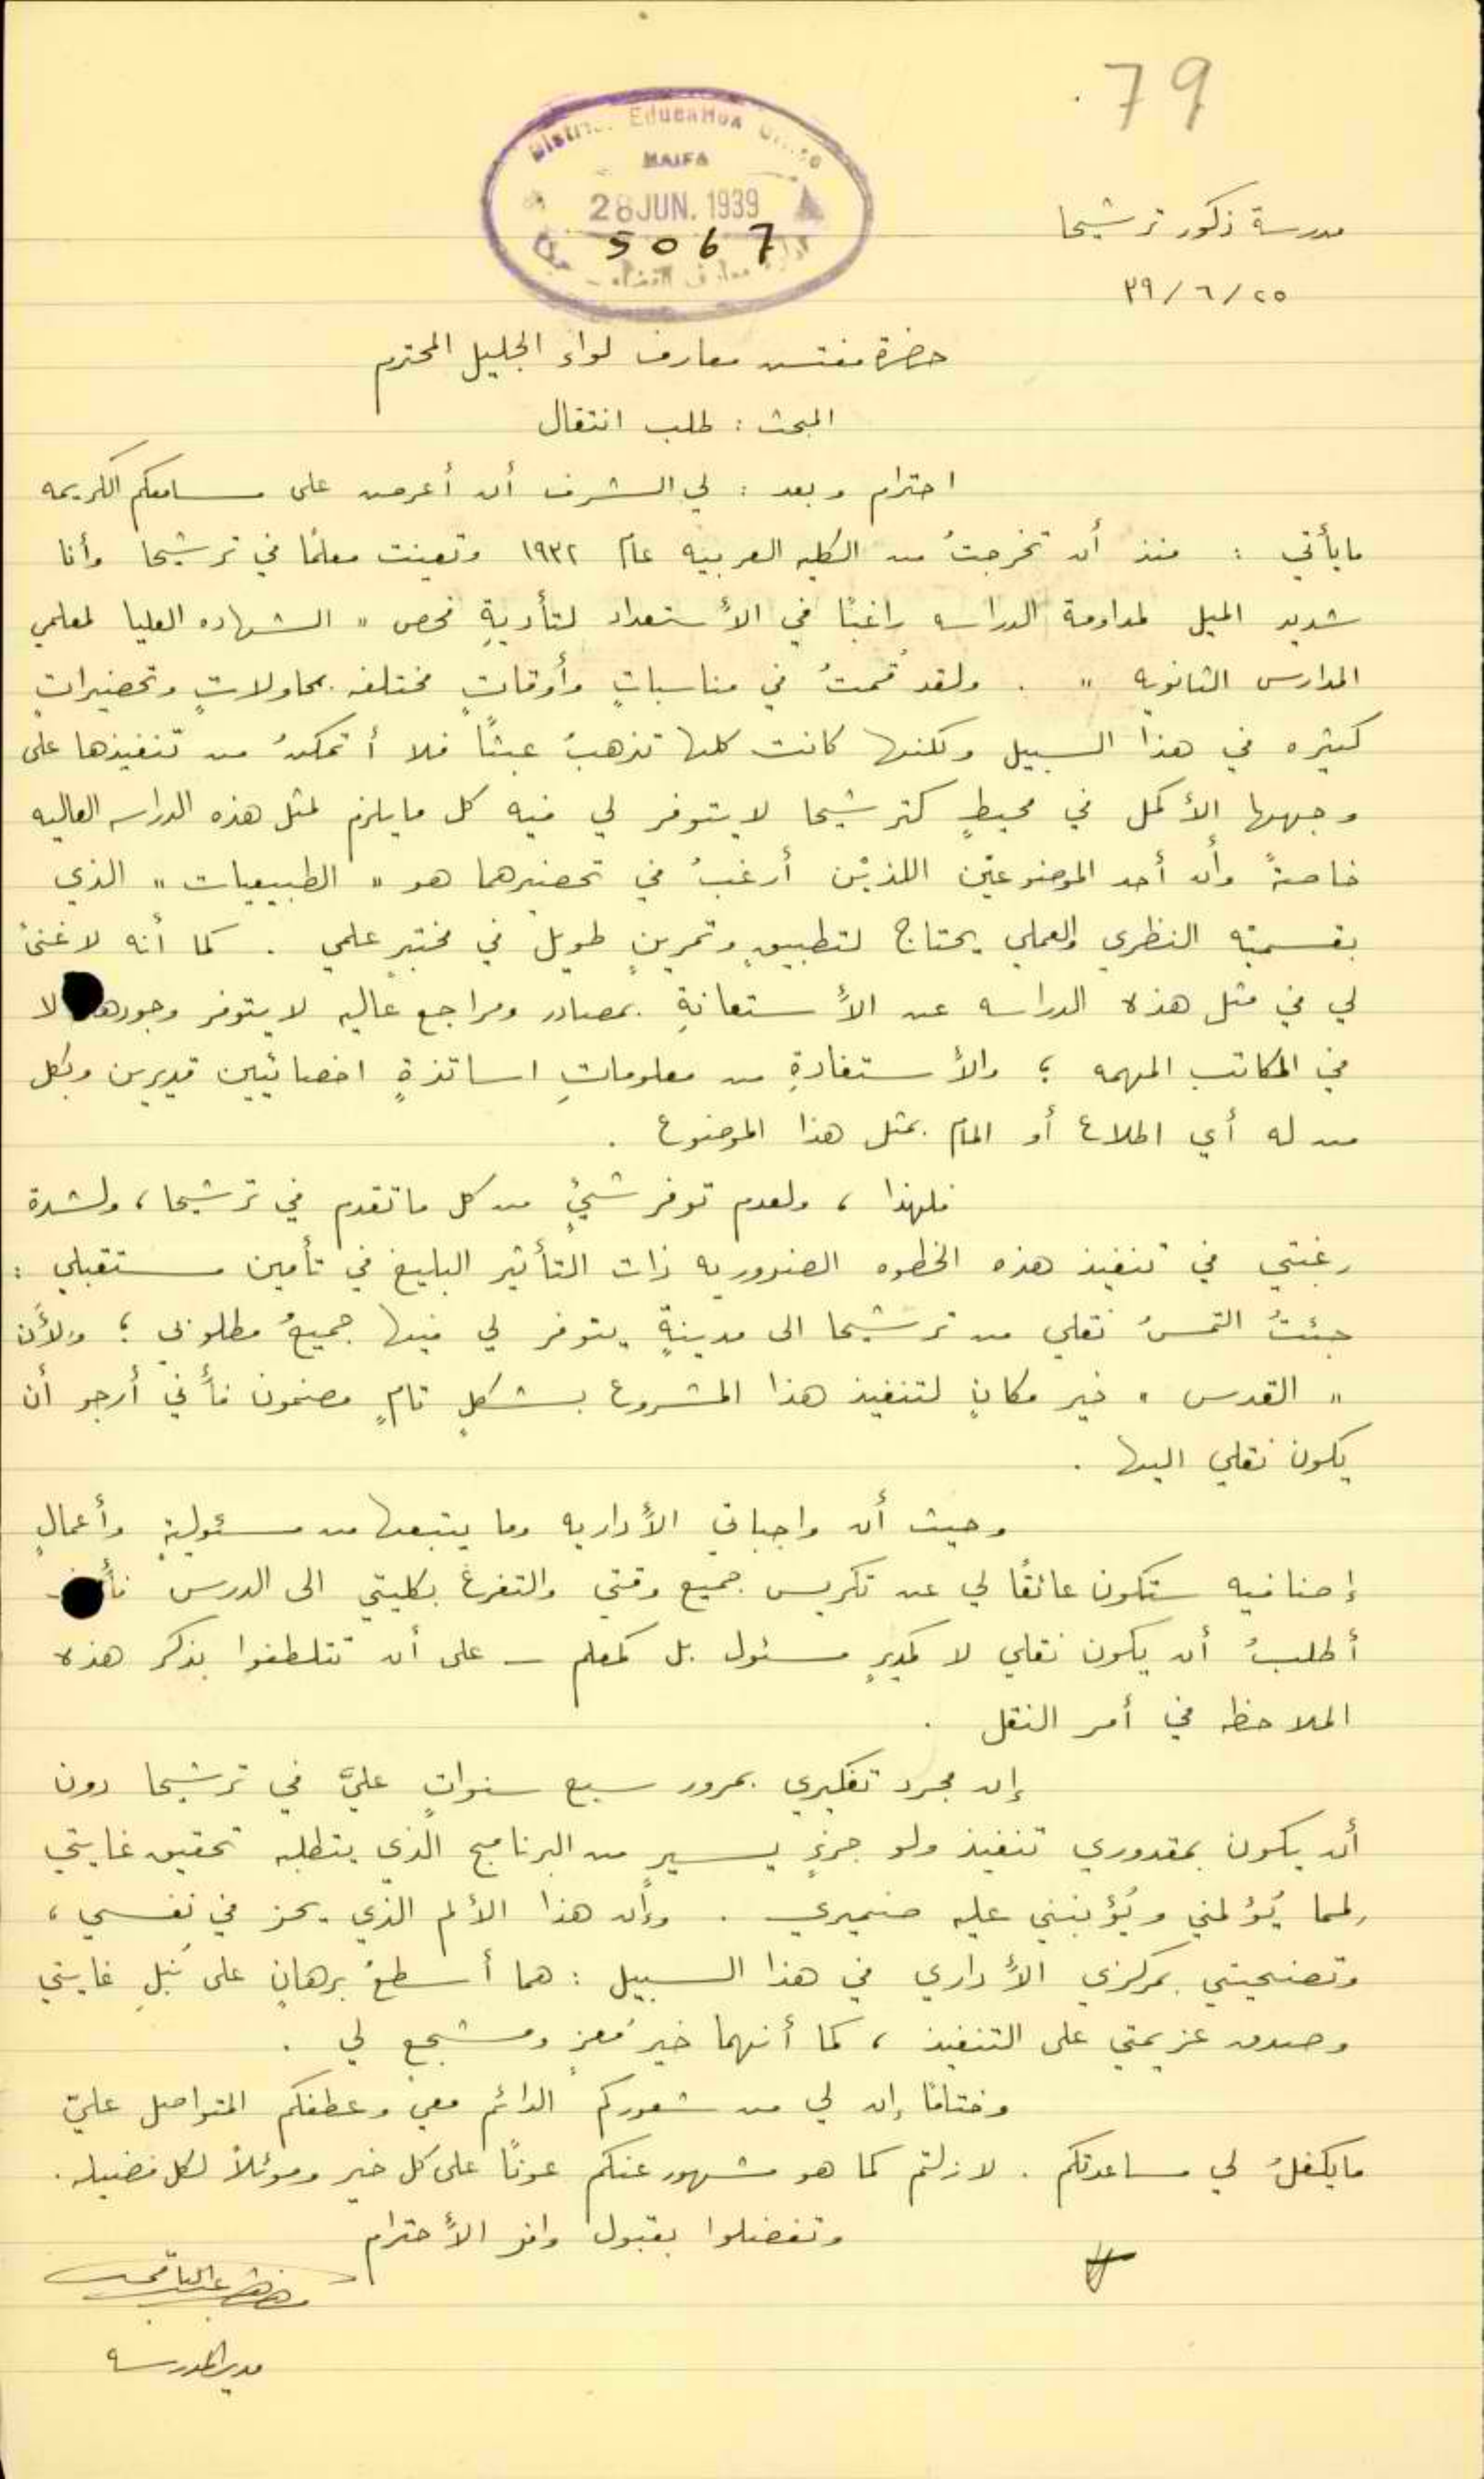 79
District Education Office
HAIFA
28 JUN. 1939
5067
ادارة معارف القضاء - حيفا
مدرسة ذكور ترشيحا
٢٥/٦/٣٩
حضرة مفتش معارف لواء الجليل المحترم
المبحث : طلب انتقال
احترام وبعد : لي الشرف أن أعرض على مسامعكم الكريمه
مايأتي : منذ أن تخرجتُ من الكليه العربيه عام ١٩٣٢ وتعينت معلمًا في ترشيحا وأنا
شديد الميل لمداومة الدراسه راغبًا في الأستعداد لتأديةِ فحص " الشهاده العليا لمعلمي
المدارس الثانويه " . ولقد قُمتُ في مناسباتٍ وأوقاتٍ مختلفه بمحاولاتٍ وتحضيراتٍ
كثيره في هذا السبيل ولكنها كانت كلها تذهبُ عبثًا فلا أتمكنُ من تنفيذها على
وجهها الأكمل في محيطٍ كترشيحا لا يتوفر لي فيه كل مايلزم لمثل هذه الدراسه العاليه
خاصةً وأن أحد الموضوعيْن اللذيْن أرغبُ في تحضيرهما هو " الطبيعيات " الذي
بقسميْه النظري والعملي يحتاج لتطبيقٍ وتمرينٍ طويل في مختبرٍ علمي . كما أنه لا غنىً
لي في مثل هذه الدراسه عن الأستعانةِ بمصادر ومراجع عاليه لا يتوفر وجودها الا
في المكاتب المهمه ؛ والأستفادةِ من معلوماتِ اساتذةٍ اخصائيين قديرين وبكل
من له أي اطلاع أو المام بمثل هذا الموضوع .
فلهذا ، ولعدم توفر شيءٍ من كل ماتقدم في ترشيحا ، ولشدة
رغبتي في تنفيذ هذه الخطوه الضروريه ذات التأثير البليغ في تأمين مستقبلي :
جئتُ التمسُ نقلي من ترشيحا الى مدينةٍ يتوفر لي فيها جميعُ مطلوبي ؛ ولأن
" القدس " خير مكانٍ لتنفيذ هذا المشروع بشكلٍ تامٍ مضمون فأني أرجو أن
يكون نقلي اليها .
وحيث أن واجباتي الأداريه وما يتبعها من مسئوليةٍ وأعمالٍ
إضافيه ستكون عائقًا لي عن تكريس جميع وقتي والتفرغ بكليتي الى الدرس فأني
أطلبُ أن يكون نقلي لا كمديرٍ مسئول بل كمعلم – على أن تتلطفوا بذكر هذه
الملاحظه في أمر النقل .
إن مجرد تفكيري بمرور سبع سنواتٍ عليَّ في ترشيحا دون
أن يكون بمقدوري تنفيذ ولو جزءٍ يسيرٍ من البرنامج الذي يتطلبه تحقيق غايتي
لمما يُؤلمني ويُؤنبني عليه ضميري . وإن هذا الألم الذي يحز في نفسي ،
وتضحيتي بمركزي الأداري في هذا السبيل : هما أسطعُ برهانٍ على نُبلِ غايتي
وصدق عزيمتي على التنفيذ ، كما أنهما خيرُ مُعزٍ ومشجع لي .
وختامًا إن لي من شعوركم الدائم معي وعطفكم المتواصل عليّ
مايكفلُ لي مساعدتكم . لازلتم كما هو مشهور عنكم عونًا على كل خير وموئلاً لكل فضيله .
وتفضلوا بقبول وافر الأحترام
مدير المدرسه